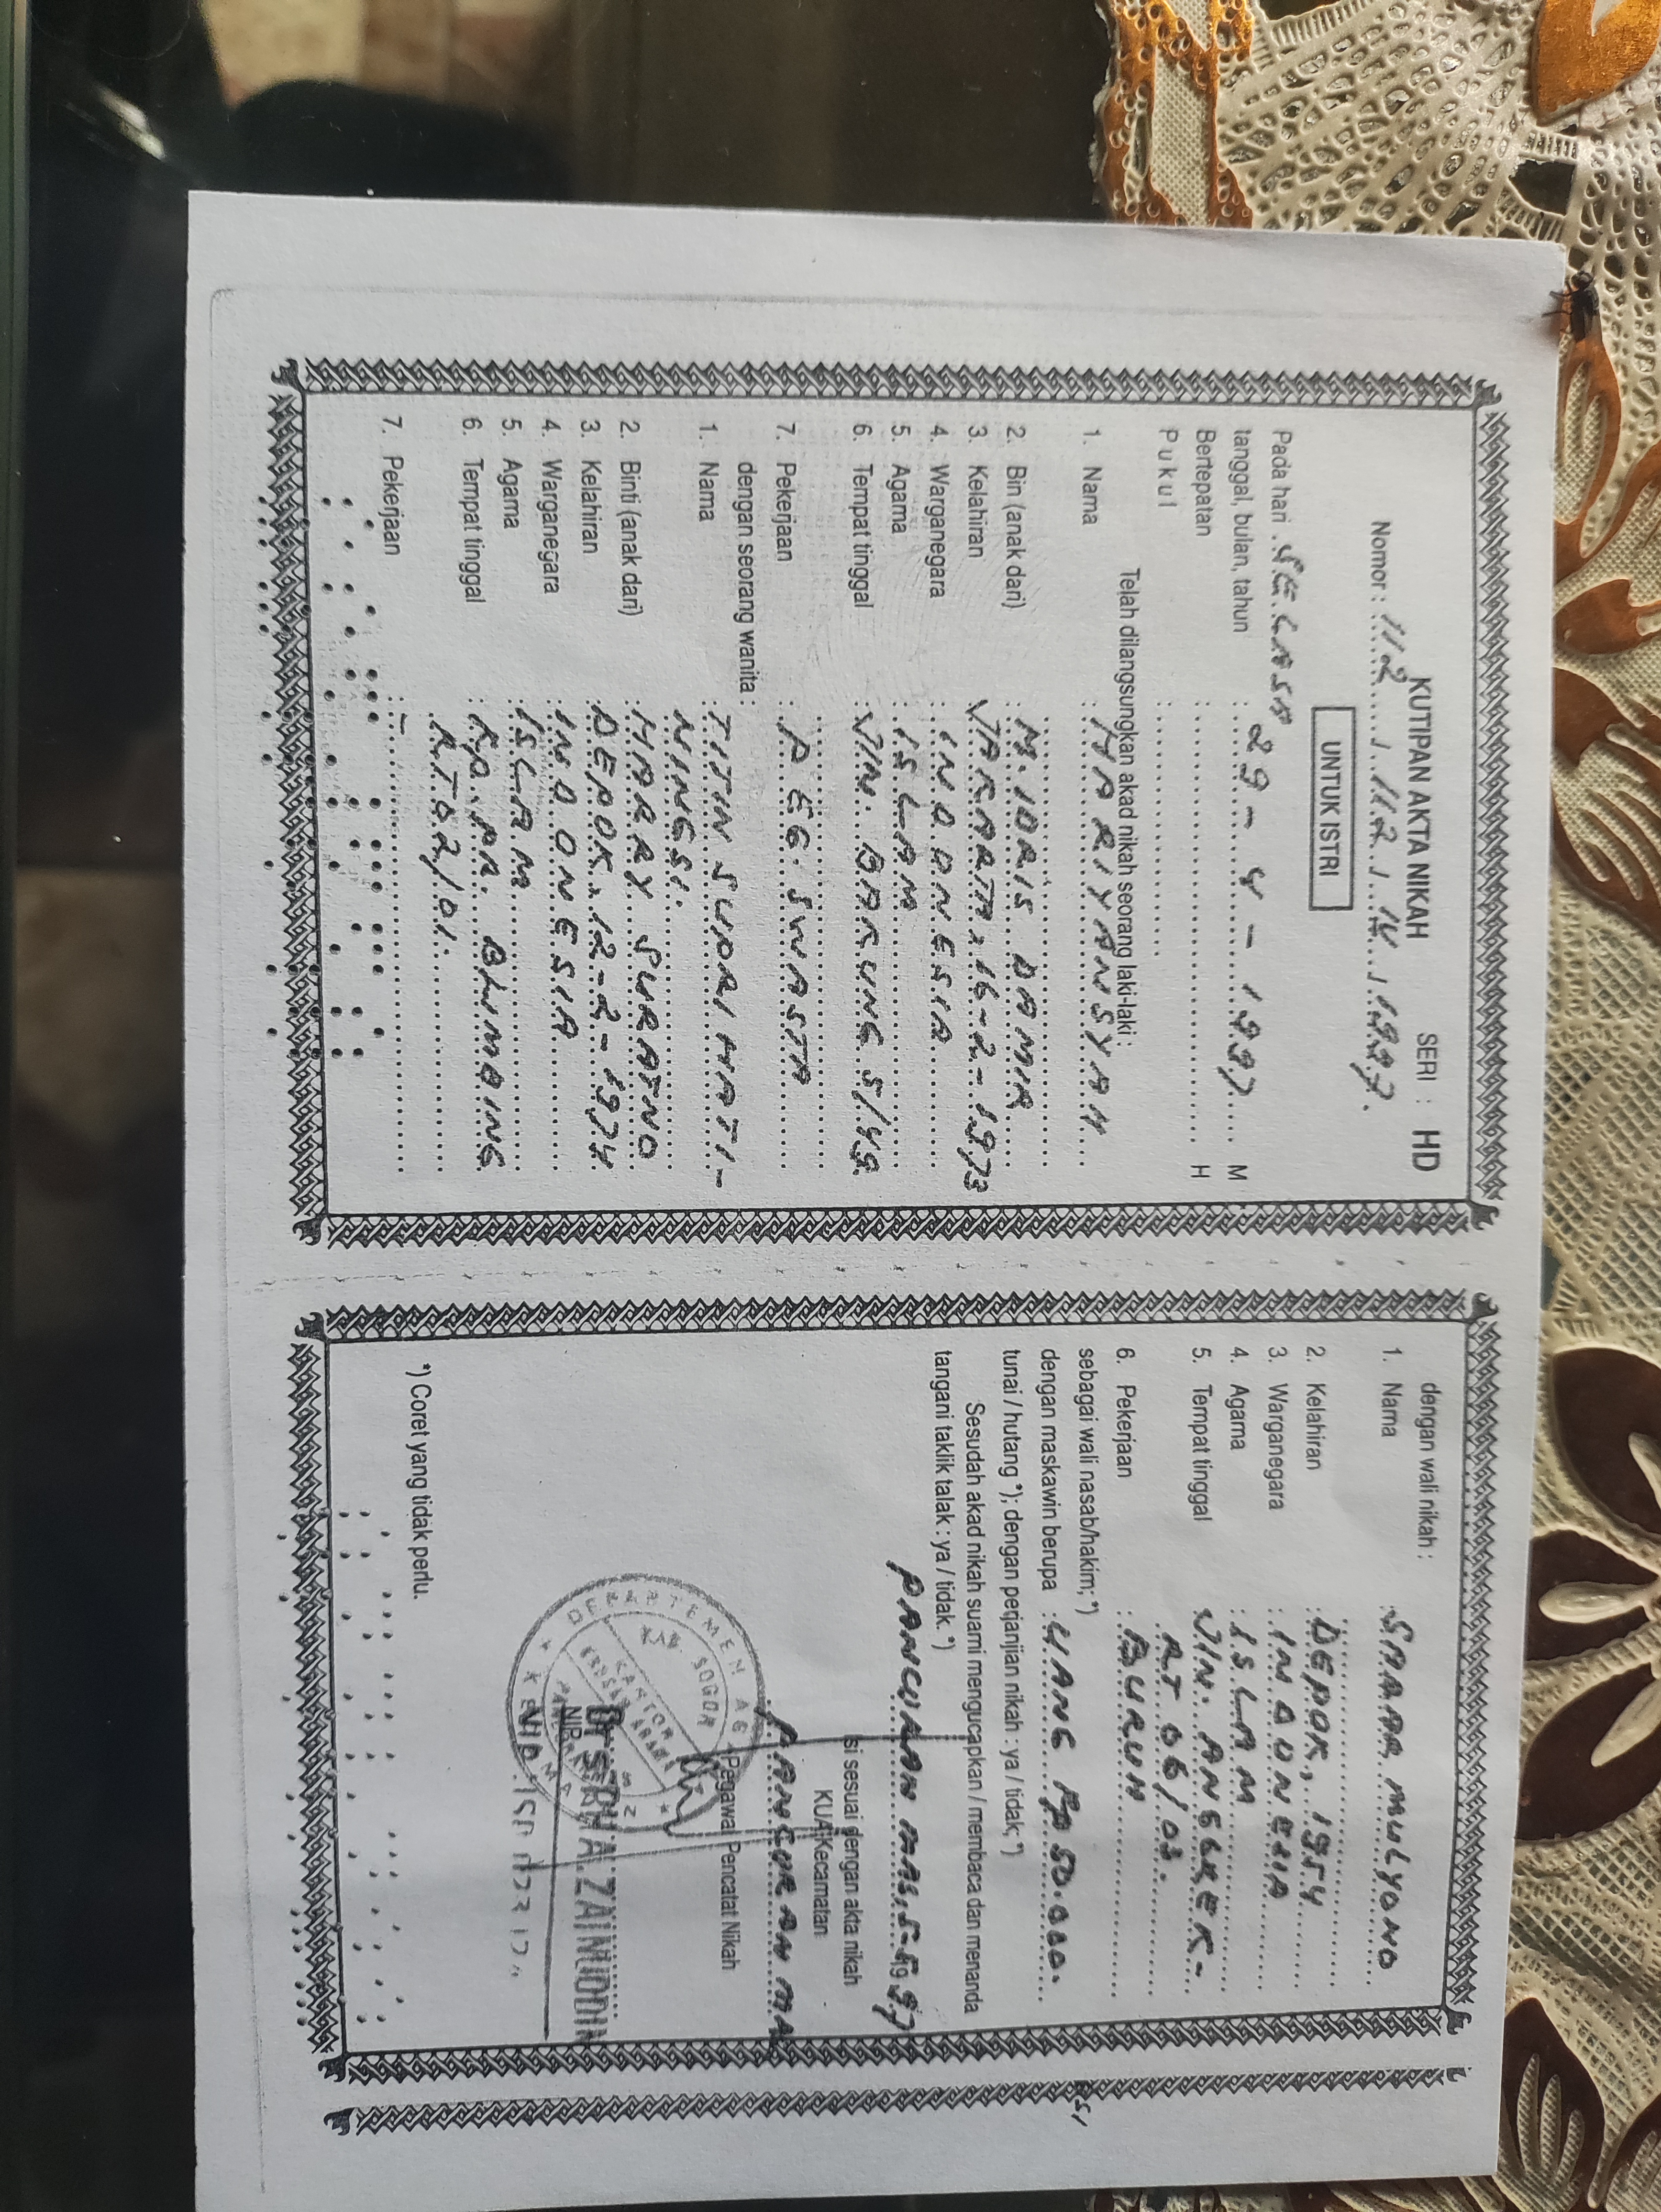 KUTIPAN AKTA NIKAH
SERI : HD
Nomor : 112 / 112 / IV / 1997.
UNTUK ISTRI
Pada hari SELASA
tanggal, bulan, tahun : 29 - 4 - 1997 M
Bertepatan : H
Pukul :
Telah dilangsungkan akad nikah seorang laki-laki :
1. Nama : HARIYANSYAH
2. Bin (anak dari) : M. IDRIS DAMIR
3. Kelahiran JAKARTA, 16-2-1973
4. Warganegara : INDONESIA
5. Agama : ISLAM
6. Tempat tinggal : JLN. BAKUNG 5/49.
7. Pekerjaan : PEG. SWASTA
dengan seorang wanita :
1. Nama : TITIN SUPRIHATI-
NINGSI.
2. Binti (anak dari) : HARRY SURATNO
3. Kelahiran DEPOK, 12-2-1974
4. Warganegara : INDONESIA
5. Agama : ISLAM
6. Tempat tinggal : KP. PR. BLIMBING
RT 02/01.
7. Pekerjaan : -
dengan wali nikah :
1. Nama : MULYONO
2. Kelahiran : DEPOK, 1954
3. Warganegara : INDONESIA
4. Agama : ISLAM
5. Tempat tinggal JLN.
RT 06/03.
6. Pekerjaan : BURUH
sebagai wali nasab/hakim; *)
dengan maskawin berupa : UANG Rp 50.000.
tunai / hutang *); dengan perjanjian nikah : ya / tidak; *)
Sesudah akad nikah suami mengucapkan / membaca dan menanda
tangani taklik talak : ya / tidak. *)
PANCURAN MAS, 5-5-1997
Isi sesuai dengan akta nikah
KUA Kecamatan
PANCORAN MA
Pegawai Pencatat Nikah
DEPARTEMEN AGAMA
KAB. BOGOR
KANTOR
ZAINUDDIN
NIP.
*) Coret yang tidak perlu.